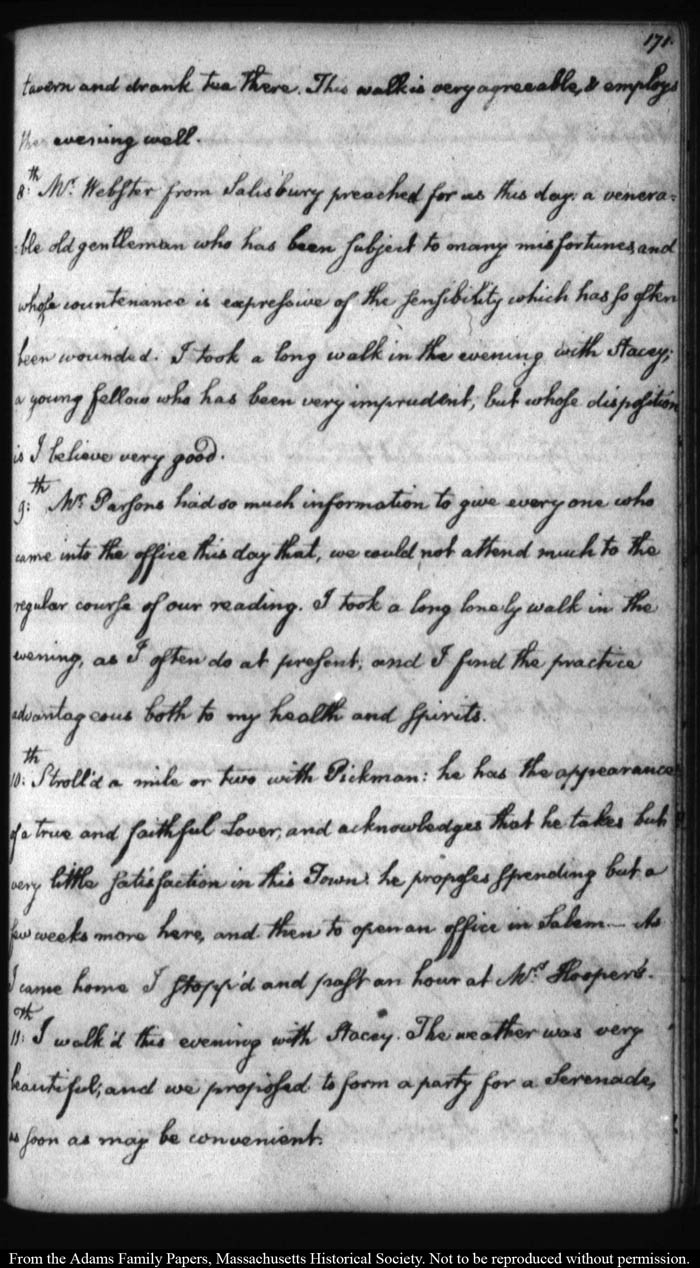 171.
tavern and drank tea there. This walk is very agreeable, & employs
the evening well.
8:th Mr. Webster from Salisbury preached for us this day: a venera-
-ble old gentleman who has been subject to many misfortunes, and
whose countenance is expressive of the sensibility which has so often
been wounded. I took a long walk in the evening with Stacey;
a young fellow who has been very imprudent; but whose disposition
is I believe very good.
9:th Mr. Parsons had so much information to give every one who
came into the office this day that, we could not attend much to the
regular course of our reading. I took a long lonely walk in the
evening, as I often do at present; and I find the practice
advantageous both to my health and spirits.
10:th Stroll'd a mile or two with Pickman: he has the appearance
of a true and faithful Lover, and acknowledges that he takes but
very little satisfaction in this Town: he proposes spending but a
few weeks more here, and then to open an office in Salem. — As
I came home I stopp'd and past an hour at Mrs. Hooper's.
11:th I walk'd this evening with Stacey. The weather was very
beautiful; and we proposed to form a party for a Serenade,
as soon as may be convenient.
From the Adams Family Papers, Massachusetts Historical Society. Not to be reproduced without permission.